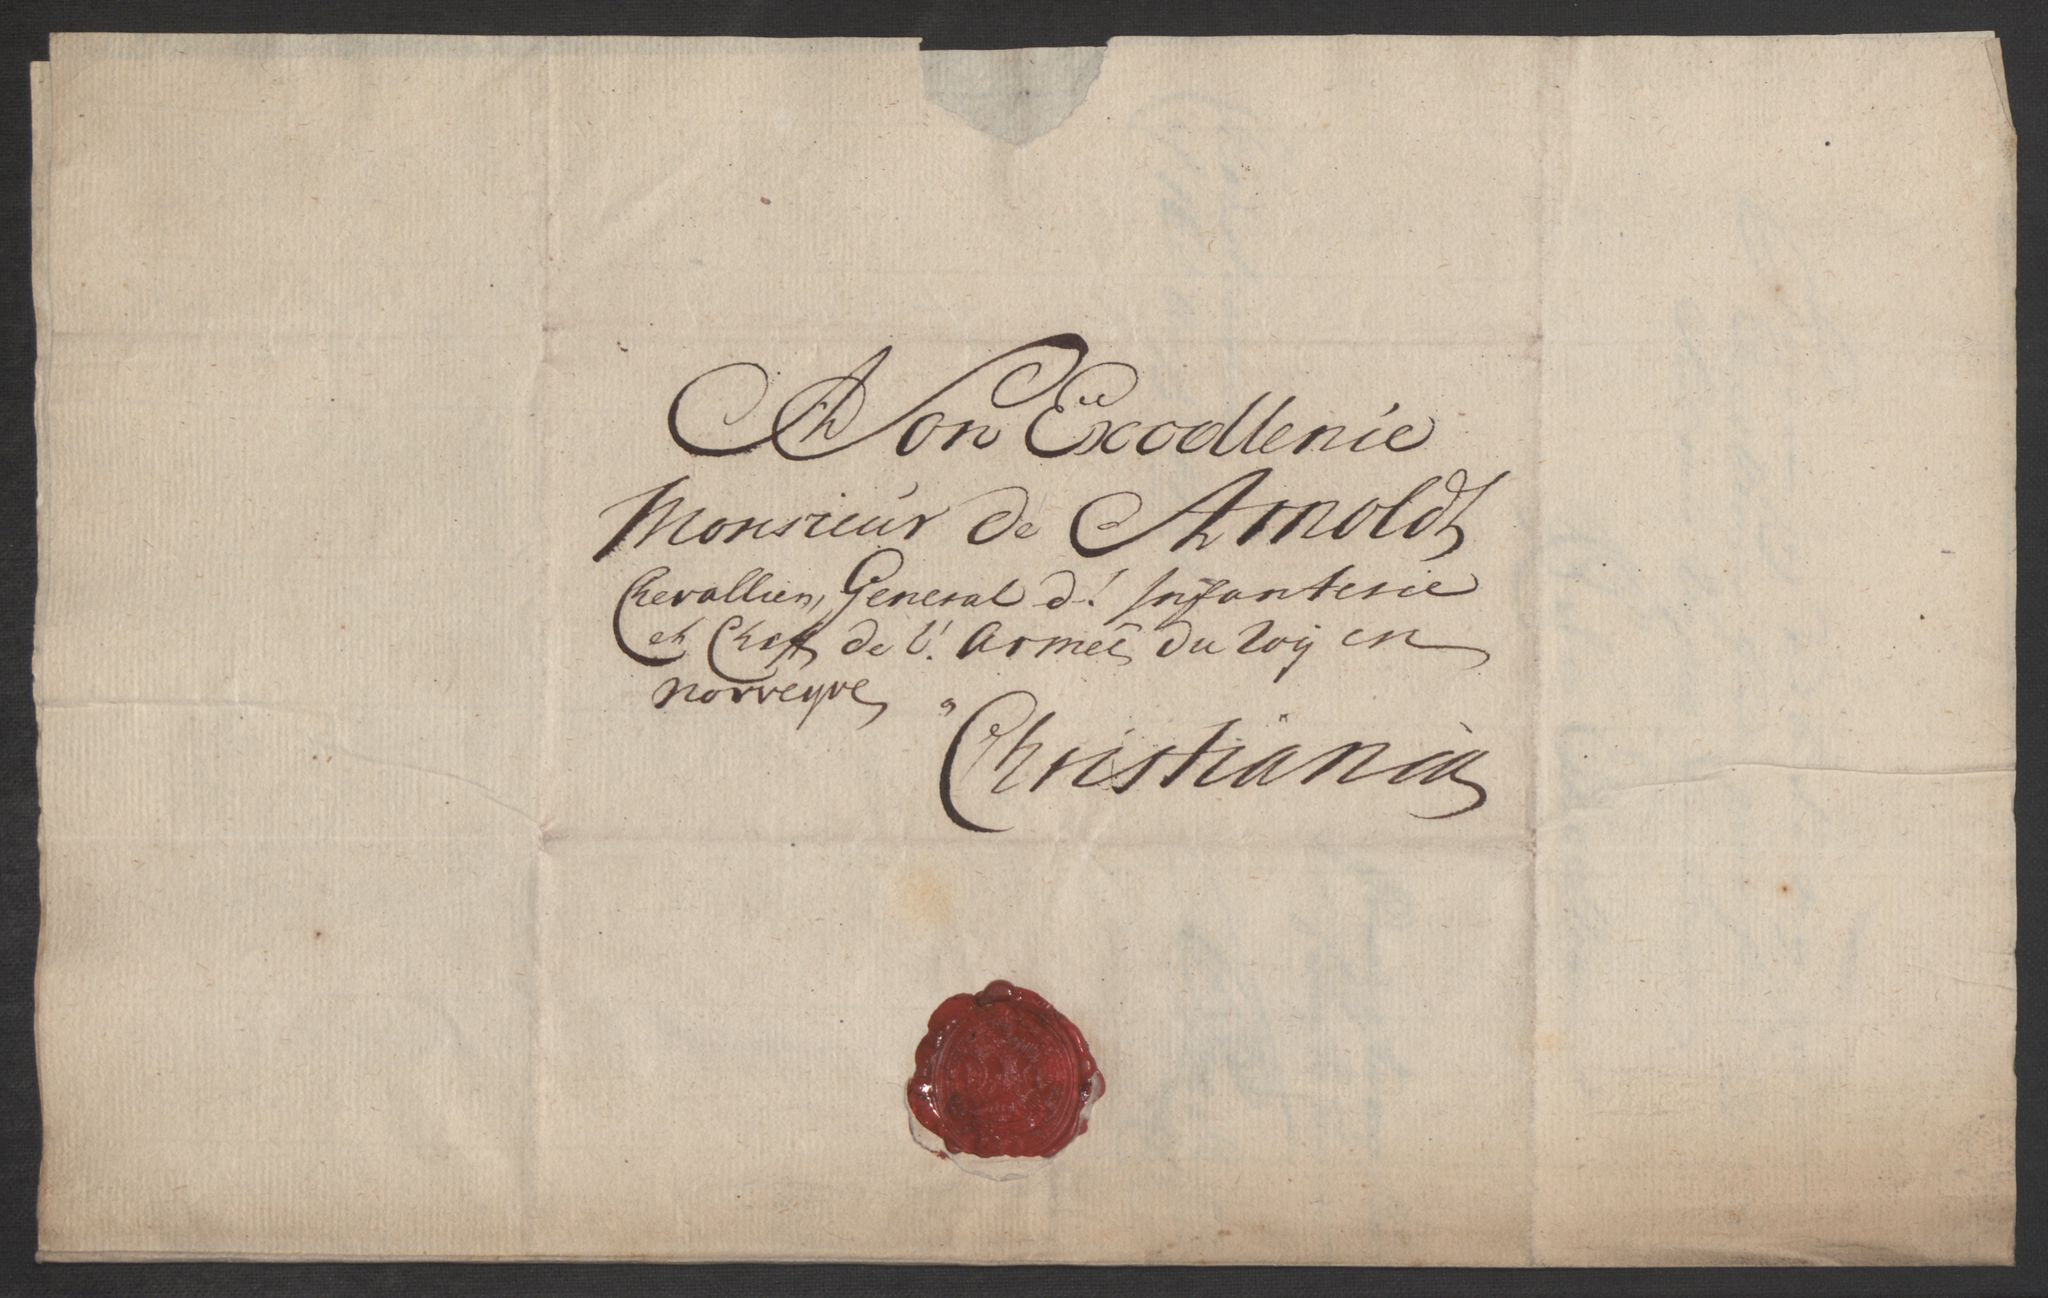 A Son Excellencie
Monsieur de Arnoldt
Chevallier, General d'Infanterie
et Cheff de l'Armeé du roy en
Norvegve
a
Christiania